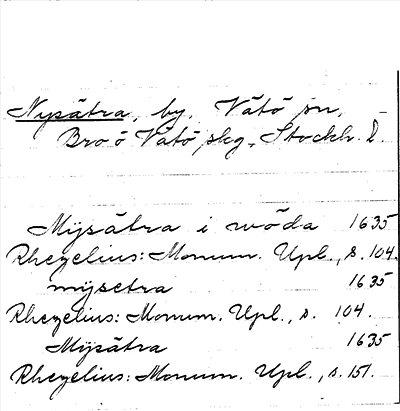 Nysätra, by, Vätö sn,
Bro o Vätö skg, Stockh. l.
Mysätra i wöda 1635
Rhezelius: Monum. Upl., s. 104.
mysetra 1635
Rhezelius: Monum. Upl., s. 104.
Mysätra 1635
Rhezelius: Monum. Upl., s. 151.